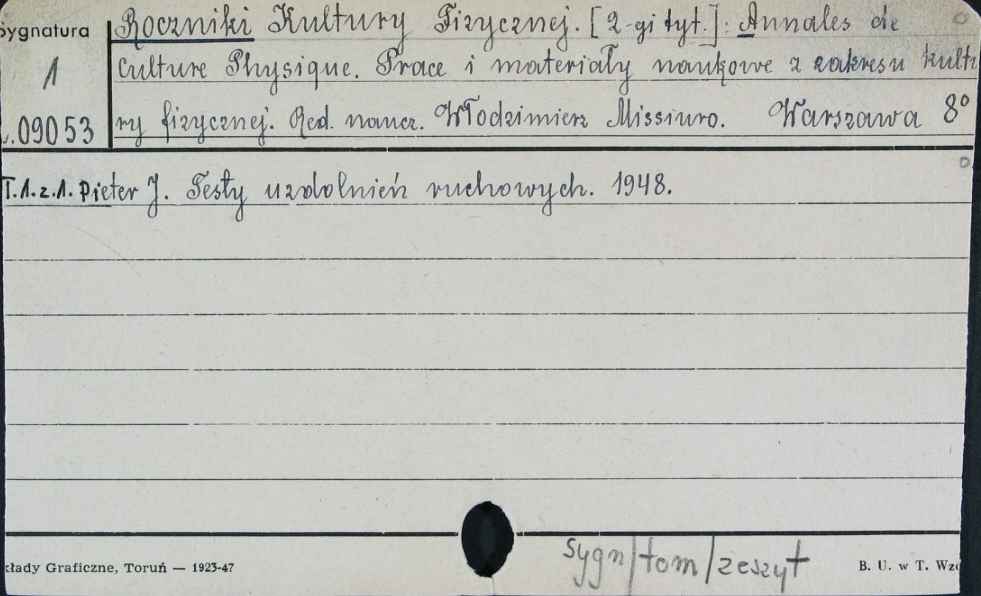 Sygnatura
1
.09053
Roczniki Kultury Fizycznej. [2-gi tyt.]: Annales de
Culture Physique. Prace i materiały naukowe z zakresu kult
ry fizycznej. Red. naucz. Włodzimierz Missiuro. Warszawa 8°
T.1.z.1. Pieter J. Testy uzdolnień ruchowych. 1948.
kłady Graficzne, Toruń — 1923-47
sygn/tom/zeszyt
B. U. w T. Wzó